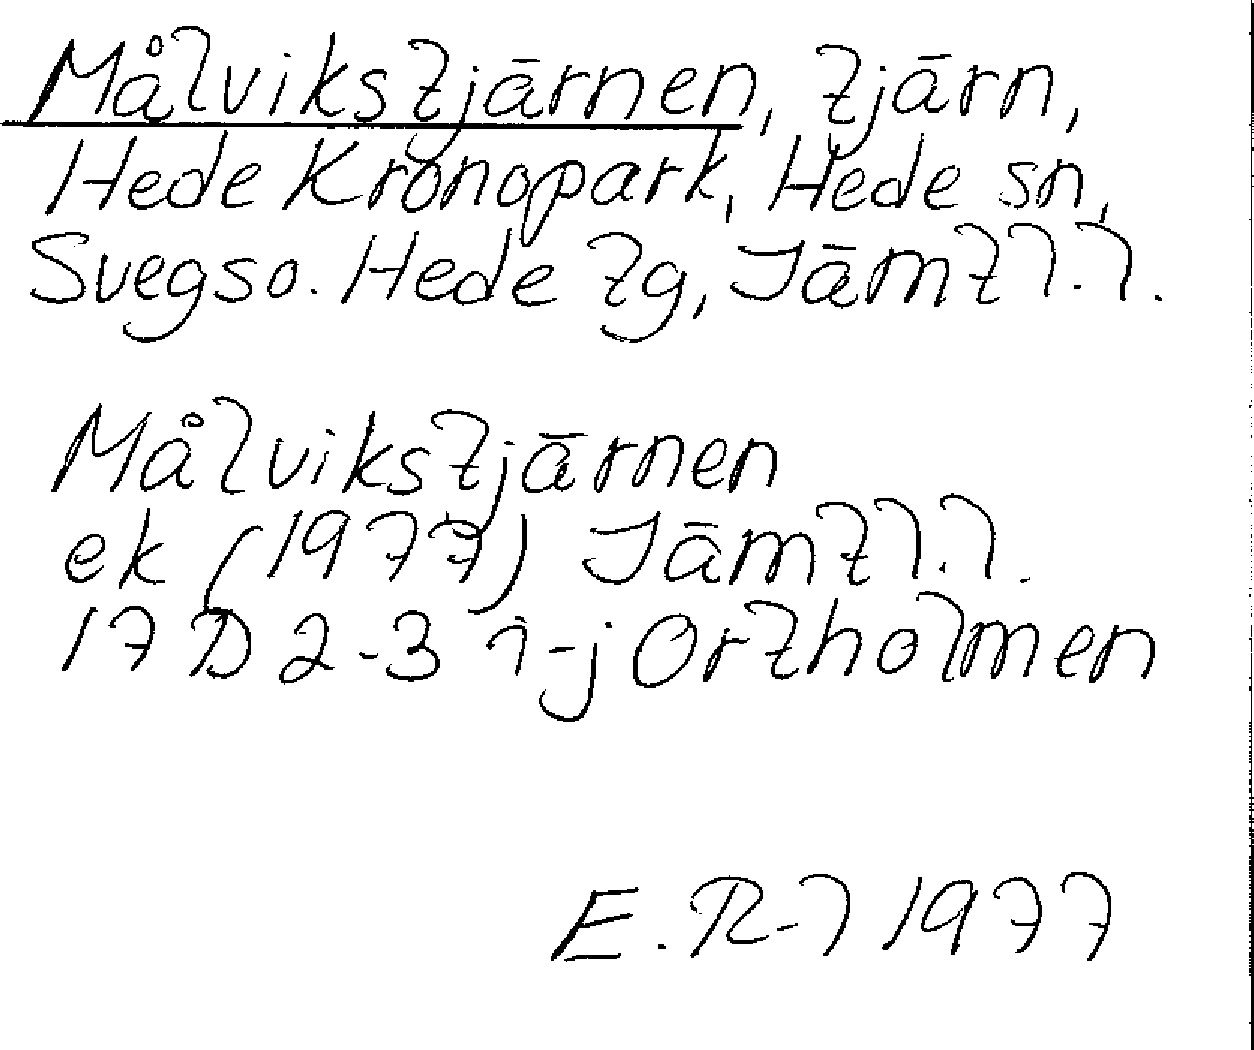 Målvikstjärnen, tjärn,
Hede Kronopark, Hede sn,
Svegs o. Hede tg, Jämtl.l.
Målvikstjärnen
ek (1977) Jämtl.l.
17 D 2-3 i-j Ortholmen
E. R-l 1977